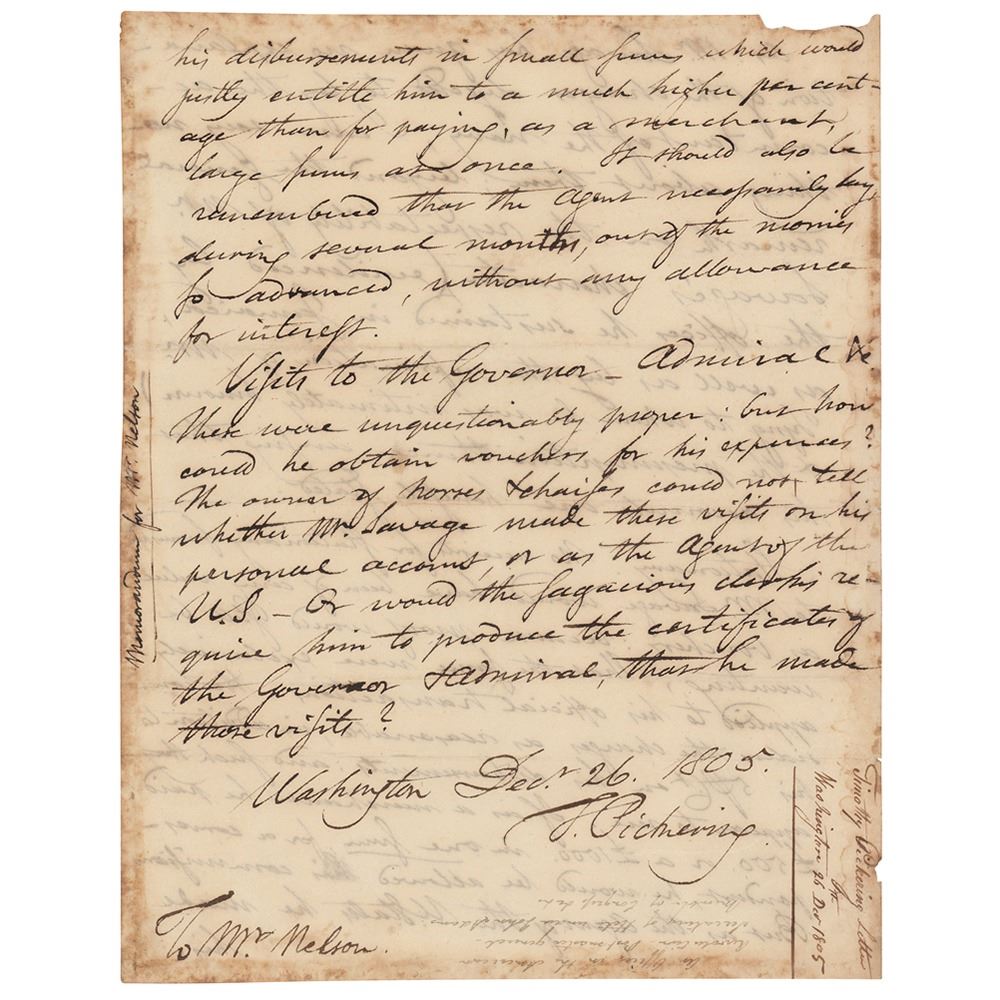 his disbursements in small sums which would
justly entitle him to a much higher per cent-
age than for paying, as a merchant,
large sums at once. It should also be
remembered that the Agent necessarily lay,
during several months, out of the monies
so advanced, without any allowance
for interest.
Visits to the Governor - Admiral &c.
These were unquestionably proper: but how
could he obtain vouchers for his expences?
The owner of horses & chaises could not tell
whether Mr. Savage made these visits on his
personal account, or as the Agent of the
U.S. - Or would the sagacious clerks re-
quire him to produce the certificates of
the Governor & Admiral, that he made
those visits?
Washington Decr. 26. 1805.
T. Pickering
To Mr. Nelson.
Memorandum for Mr. Nelson
Timothy Pickering Letter
Washington 26 Dec 1805
An Officer in the American
Revolution Post master general
Secretary of State under John Adams
Member of Congress